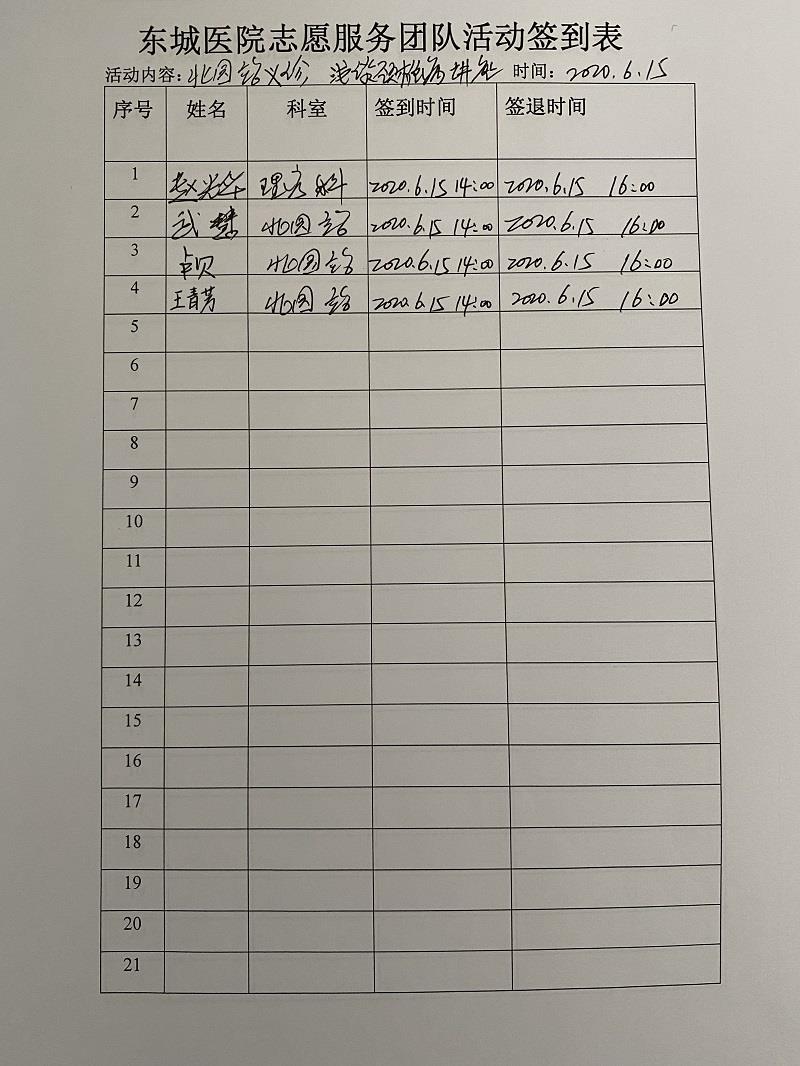 东城医院志愿服务团队活动签到表
活动内容：北园站义诊，浅谈颈椎病讲座 时间：2020.6.15
序号 姓名 科室 签到时间 签退时间
1 赵光华 理疗科 2020.6.15 14:00 2020.6.15 16:00
2 武慧 北园站 2020.6.15 14:00 2020.6.15 16:00
3 卓贝 北园站 2020.6.15 14:00 2020.6.15 16:00
4 王青芳 北园站 2020.6.15 14:00 2020.6.15 16:00
5
6
7
8
9
10
11
12
13
14
15
16
17
18
19
20
21